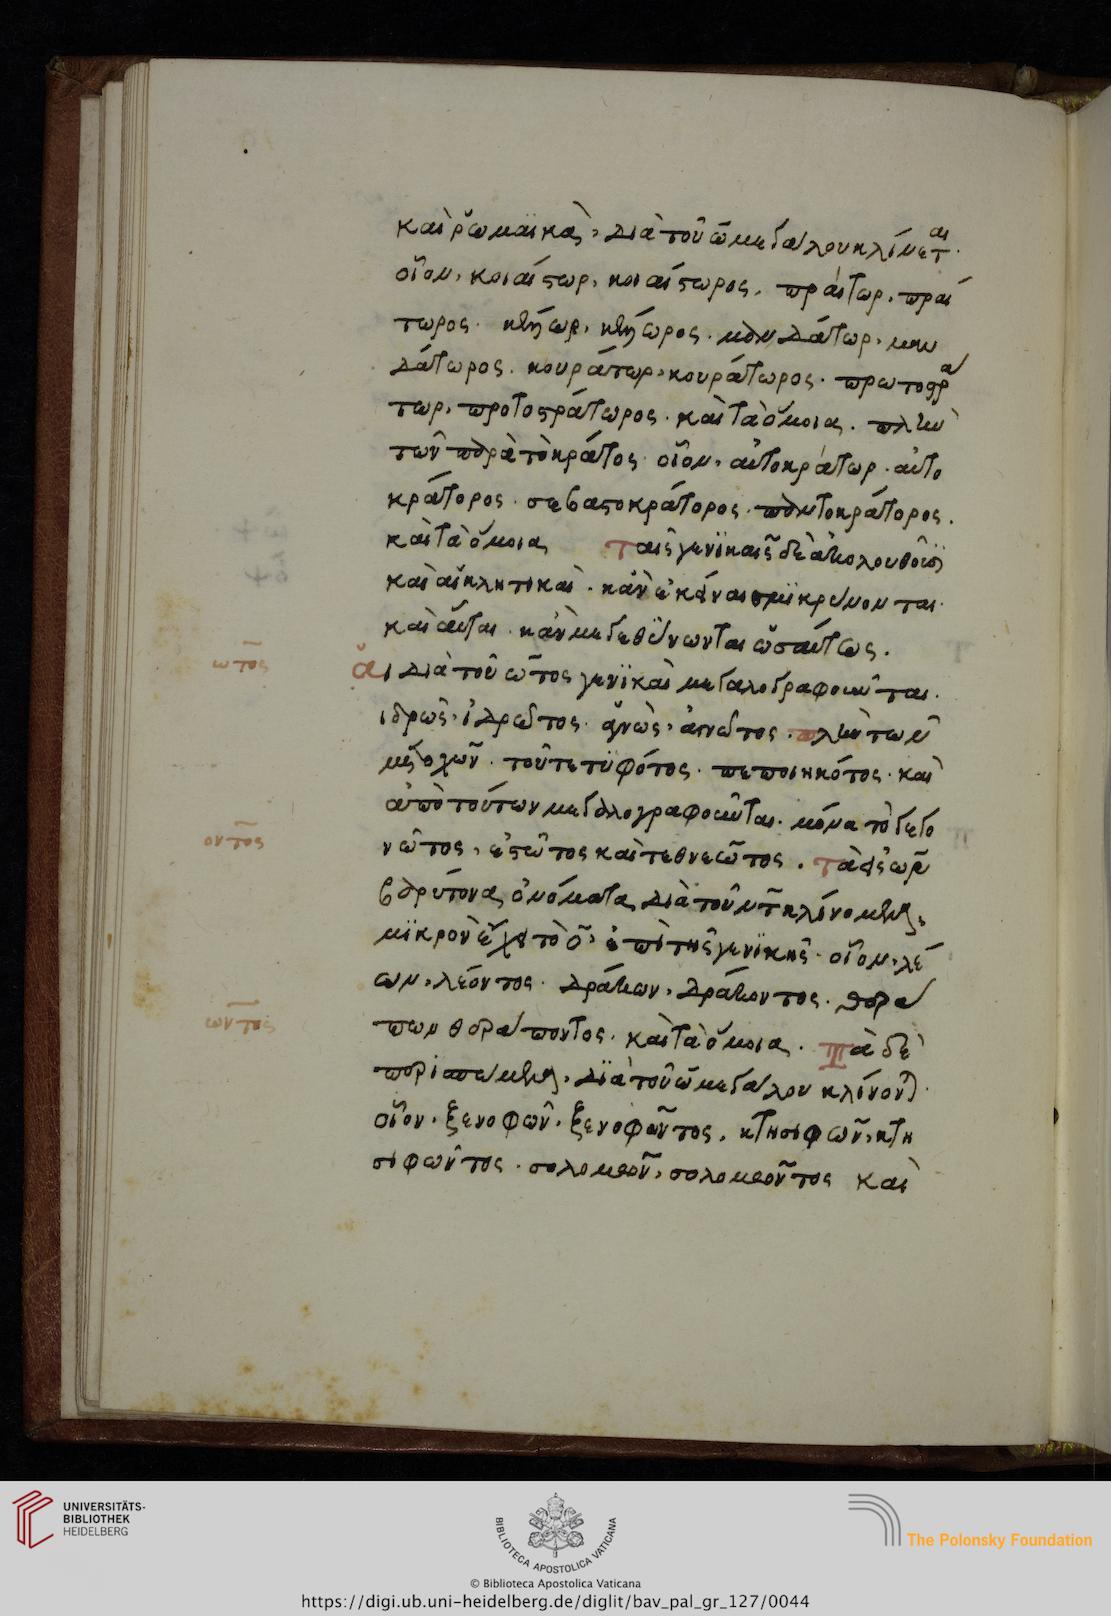 καὶ ῥωμαϊκὰ, διὰ τοῦ ω μεγάλου κλίνεται.
οἷον, κοιαίστωρ, κοιαίστωρος. πραίτωρ, πραί
τωρος. κτήτωρ, κτήτωρος. μανδάτωρ, μαν
δάτωρος. κουράτωρ, κουράτωρος. πρωτοστρά
τωρ, πρωτοστράτωρος. καὶ τὰ ὅμοια. πλὴν
τῶν παρὰ τὸ κράτος. οἷον, αὐτοκράτωρ. αὐτο
κράτορος. σεβαστοκράτορος. παντοκράτορος.
καὶ τὰ ὅμοια ταῖς γενικαῖς δὲ ἀκολουθοῦσι
καὶ αἱ κλητικαὶ. κἂν ἐκεῖναι μικρύνονται.
καὶ αὗται. κἂν μεγεθύνωνται ὡσαύτως.
ωτος
Αἱ διὰ τοῦ ωτος γενικαὶ μεγαλογραφοῦνται.
ἱδρὼς, ἱδρῶτος. πλὴν τῶν
μετοχῶν. τοῦ τετυφότος. πεποιηκότος. καὶ
ἀπὸ τούτων μεγαλογραφοῦνται. μόνα τὸ γεγο
οντος
νῶτος, ἑστῶτος καὶ τεθνεῶτος. τὰ εἰς ων
βαρύτονα ὀνόματα διὰ τοῦ ντ κλινόμενα,
μικρὸν ἔχει τὸ ο, ἐπὶ τῆς γενικῆς. οἷον, λέ
ων, λέοντος. δράκων, δράκοντος. θερά
ωντος
πων θεράποντος. καὶ τὰ ὅμοια. τὰ δὲ
περισπώμενα, διὰ τοῦ ω μεγάλου κλίνονται.
οἷον. ξενοφῶν, ξενοφῶντος. κτησιφῶν, κτη
σιφῶντος. σολομῶν, σολομῶντος καὶ
UNIVERSITÄTS-
BIBLIOTHEK
HEIDELBERG
BIBLIOTECA APOSTOLICA VATICANA
The Polonsky Foundation
© Biblioteca Apostolica Vaticana
https://digi.ub.uni-heidelberg.de/diglit/bav_pal_gr_127/0044